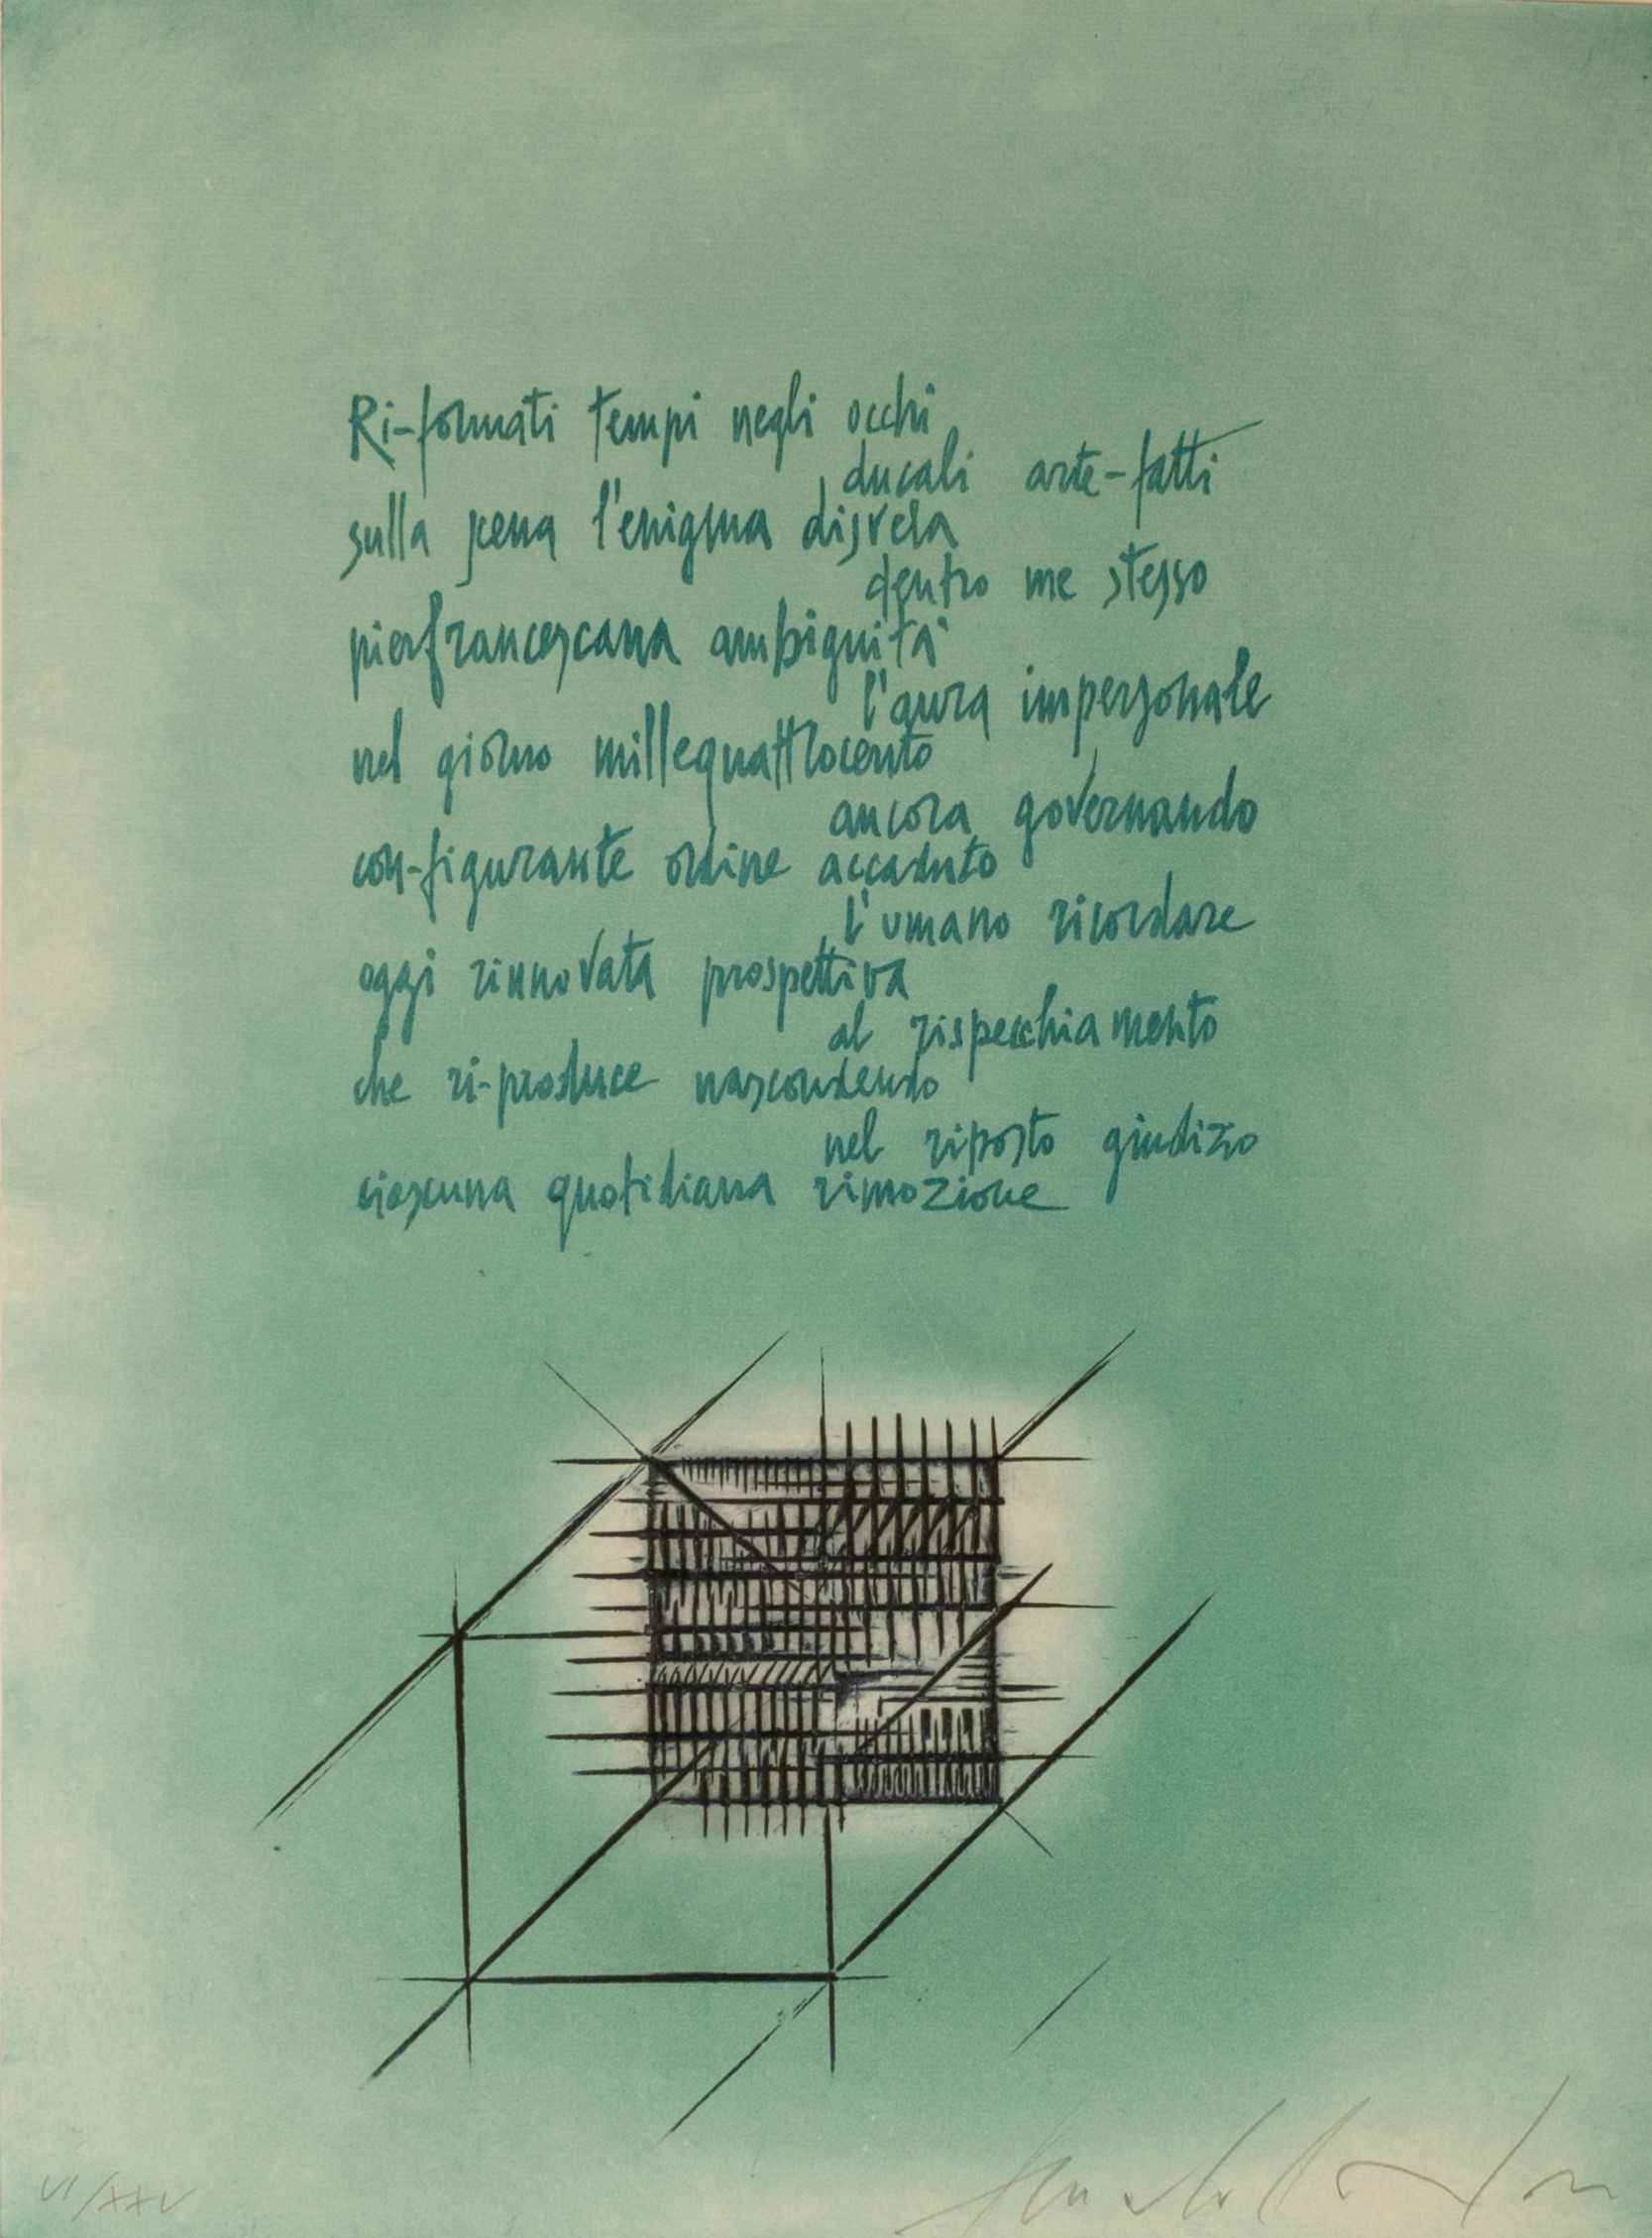 Ri-formati tempi negli occhi
ducali arte-fatti
sulla scena l'enigma disvela
dentro me stesso
pierfrancescana ambiguità
l'aura impersonale
nel giorno millequattrocento
ancora governando
con-figurante ordine accaduto
l'umano ricordare
oggi rinnovata prospettiva
al rispecchiamento
che ri-produce nascondendo
nel riposto giudizio
ciascuna quotidiana rimozione
VI/XXV